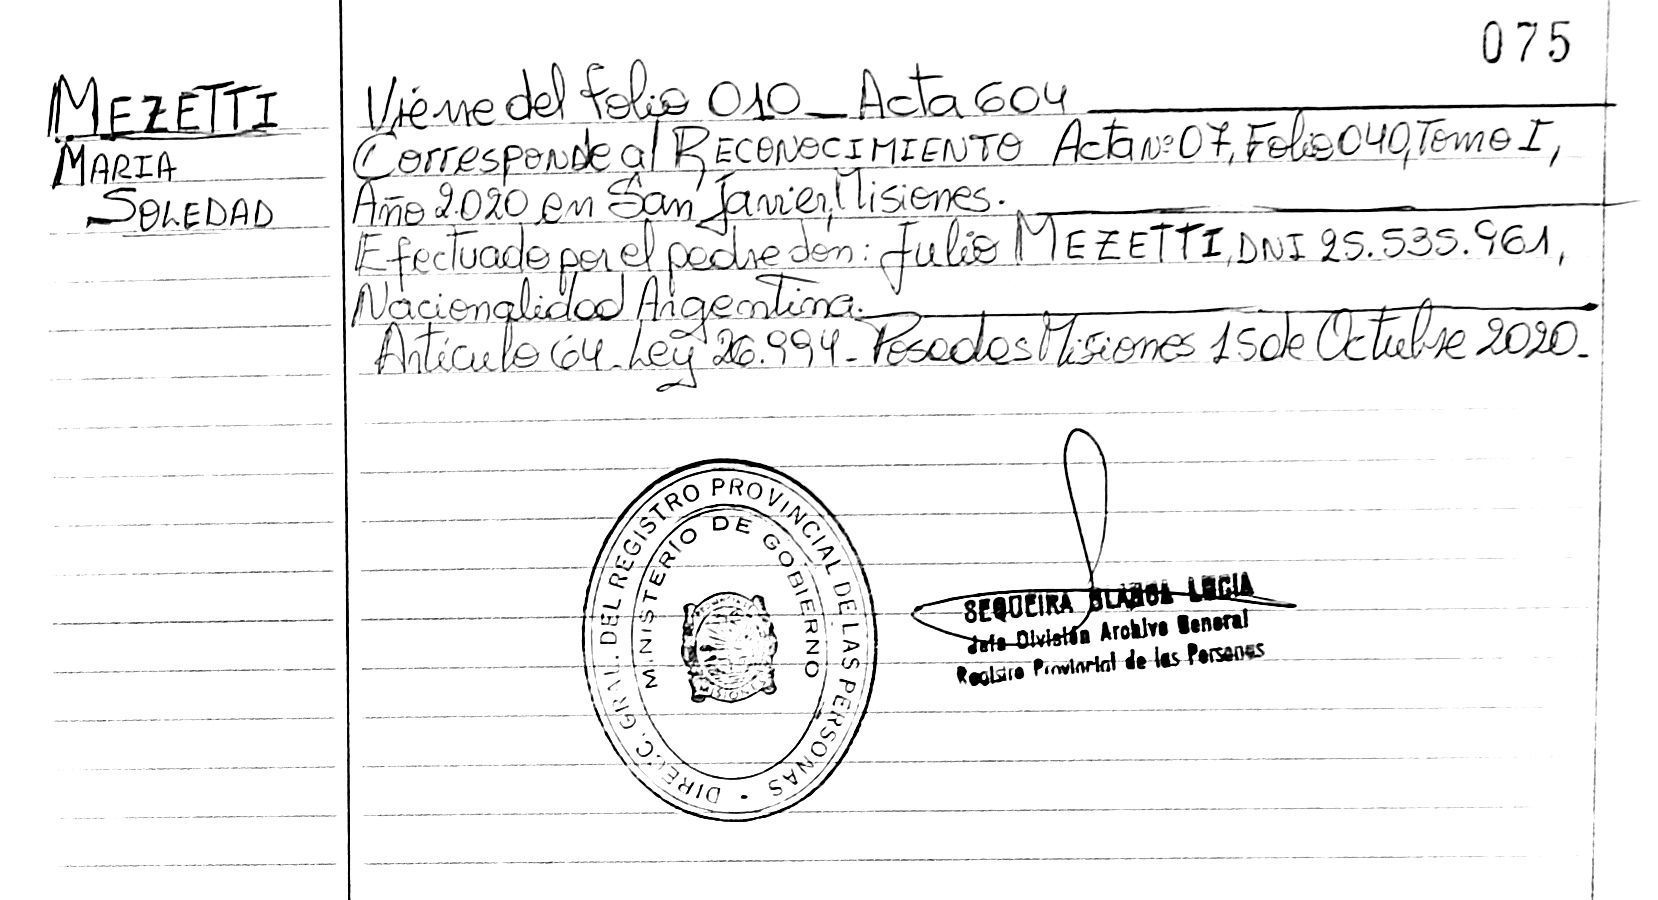 075
MEZETTI
MARIA
SOLEDAD
Viene del folio 010_Acta 604
Corresponde al RECONOCIMIENTO Acta Nº 07, Folio 040, Tomo I,
Año 2020 en San Javier, Misiones.
Efectuado por el padre don: Julio MEZETTI, DNI 25.535.961,
Nacionalidad Argentina.
Artículo 64. Ley 26.994. Posadas Misiones 15 de Octubre 2020.
DIREC. GRAL. DEL REGISTRO PROVINCIAL DE LAS PERSONAS
MINISTERIO DE GOBIERNO
MISIONES
SEQUEIRA BLANCA LUCIA
Jefe División Archivo General
Registro Provincial de las Personas